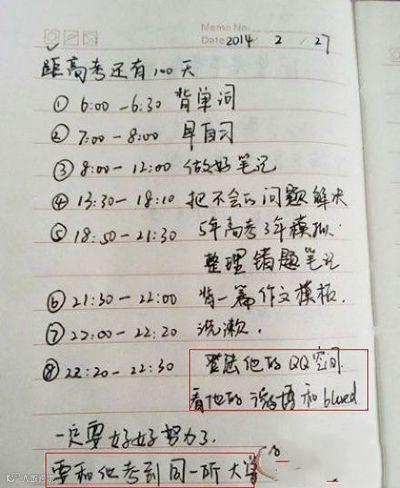 Memo No.
Date 2014 2 / 27
距高考还有100天
① 6:00 - 6:30 背单词
② 7:00 - 8:00 早自习
③ 8:00 - 12:00 做好笔记
④ 13:30 - 18:10 把不会的问题解决
⑤ 18:50 - 21:30 5年高考3年模拟.
整理错题笔记
⑥ 21:30 - 22:00 背一篇作文模板.
⑦ 22:00 - 22:20 洗漱.
⑧ 22:20 - 22:30 登陆他的QQ空间
看他的微博和blued
一定要好好努力了.
要和他考到同一所大学